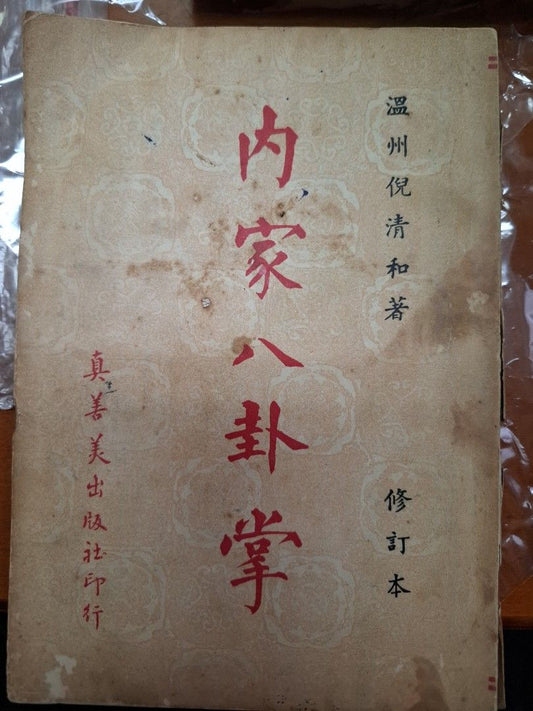 溫州倪清和著
修訂本
內家八卦掌
真善美出版社印行